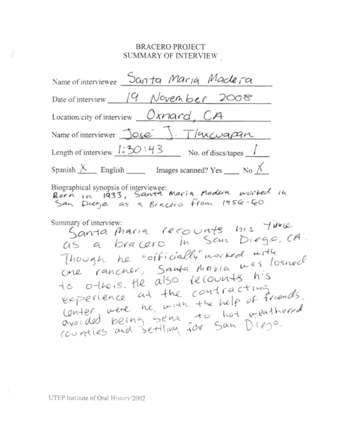 BRACERO PROJECT
SUMMARY OF INTERVIEW
Name of interviewee Santa Maria Madera
Date of interview 19 November 2008
Location/city of interview Oxnard, CA
Name of interviewer José J.
Length of interview 1:30:43 No. of discs/tapes 1
Spanish X English ___ Images scanned? Yes ___ No X
Biographical synopsis of interviewee:
Born in 1933, Santa Maria Madera worked in
San Diego as a Bracero from 1956-60
Summary of interview:
Santa Maria recounts his time
as a bracero in San Diego, CA.
Though he "officially" worked with
one rancher, Santa Maria was loaned
to others. He also recounts his
experience at the contracting
center were he, with the help of friends,
avoided being sent to hot weathered
counties and settling for San Diego.
UTEP Institute of Oral History/2002